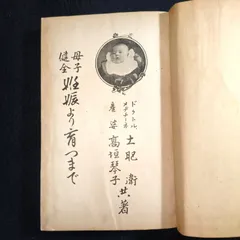 ドクトル
メヂチーネ
土肥衛
産婆 高垣琴子
共著
母子
健全
妊娠より育つまで